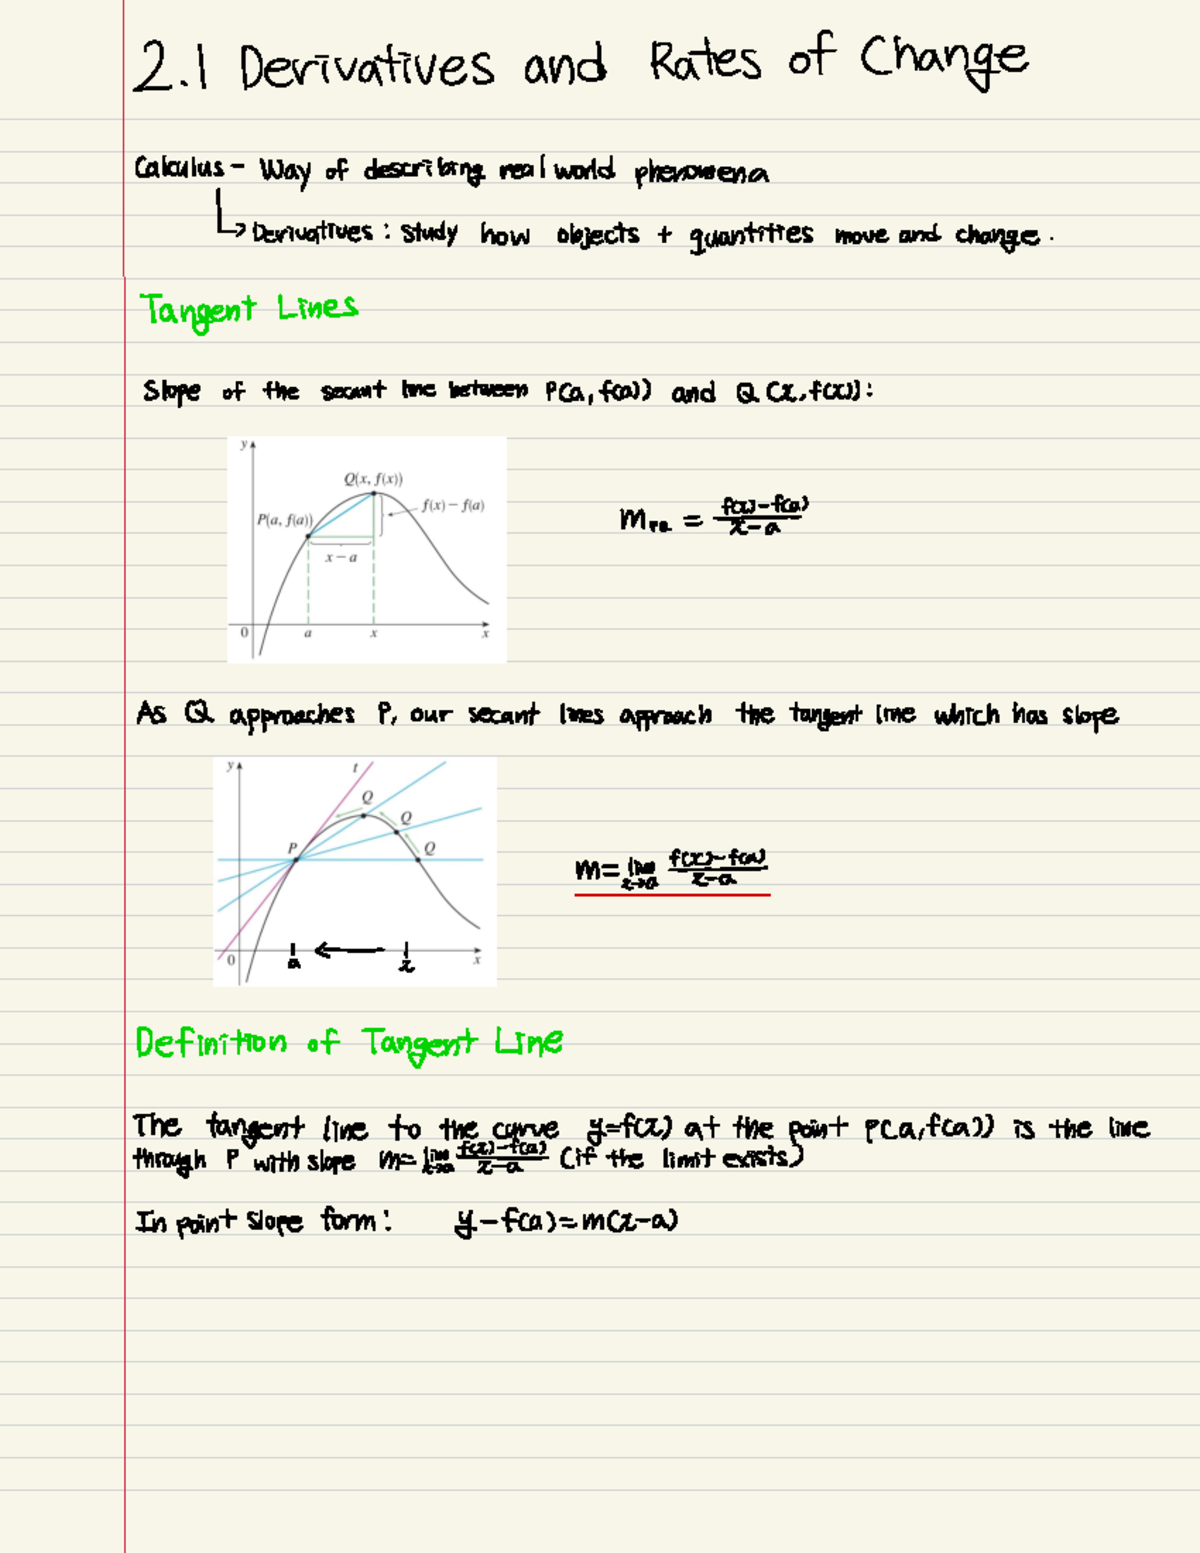 2.1 Derivatives and Rates of Change
Calculus - Way of describing real world phenomena
↳ Derivatives : Study how objects + quantities move and change.
Tangent Lines
Slope of the secant line between P(a, f(a)) and Q (x, f(x)):
y
Q(x, f(x))
f(x) − f(a)
P(a, f(a))
x − a
0 a x x
m_PQ = (f(x)-f(a))/(x-a)
As Q approaches P, our secant lines approach the tangent line which has slope
y t
Q
Q
P Q
0 a ← x x
m = lim_{x→a} (f(x)-f(a))/(x-a)
Definition of Tangent Line
The tangent line to the curve y=f(x) at the point P(a,f(a)) is the line
through P with slope m= lim_{x→a} (f(x)-f(a))/(x-a) (if the limit exists)
In point slope form: y-f(a)=m(x-a)